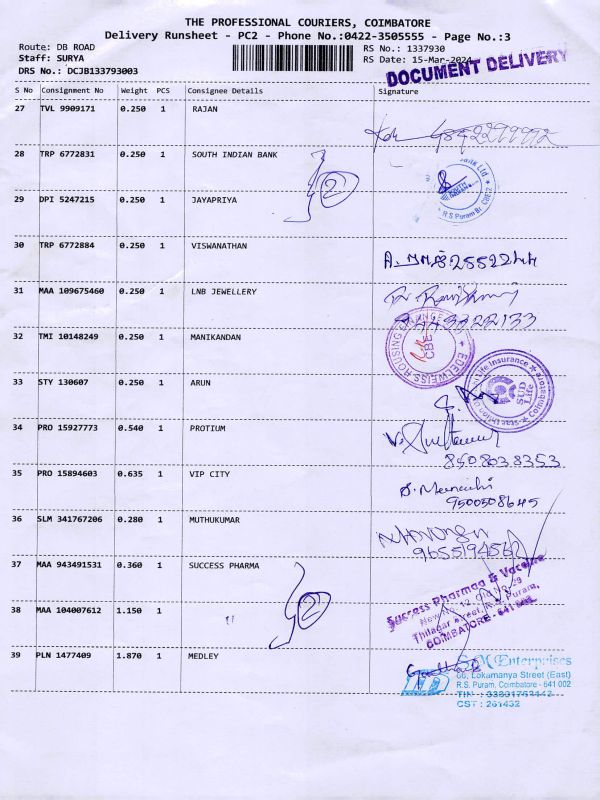 THE PROFESSIONAL COURIERS, COIMBATORE
Delivery Runsheet - PC2 - Phone No.:0422-3505555 - Page No.:3
Route: DB ROAD RS No.: 1337930
Staff: SURYA RS Date: 15-Mar-2024
DRS No.: DCJB133793003
DOCUMENT DELIVERY
S No Consignment No Weight PCS Consignee Details Signature
27 TVL 9909171 0.250 1 RAJAN
28 TRP 6772831 0.250 1 SOUTH INDIAN BANK
2
R.S.Puram Br. CBE2
29 DPI 5247215 0.250 1 JAYAPRIYA
30 TRP 6772884 0.250 1 VISWANATHAN
31 MAA 109675460 0.250 1 LNB JEWELLERY
32 TMI 10148249 0.250 1 MANIKANDAN
EDELWEISS HOUSING CBE
33 STY 130607 0.250 1 ARUN
Life Insurance Coimbatore
SUD Life
34 PRO 15927773 0.540 1 PROTIUM
8508038353
35 PRO 15894603 0.635 1 VIP CITY
S. Meenakshi
9500508645
36 SLM 341767206 0.280 1 MUTHUKUMAR
37 MAA 943491531 0.360 1 SUCCESS PHARMA
Success Pharmaa & Vaccine
New No. 12,
Thilagar Street, R.S. Puram,
COIMBATORE - 641 002.
38 MAA 104007612 1.150 1 "
2
39 PLN 1477409 1.870 1 MEDLEY
Enterprises
66, Lokamanya Street (East)
R.S. Puram, Coimbatore - 641 002
CST : 261432